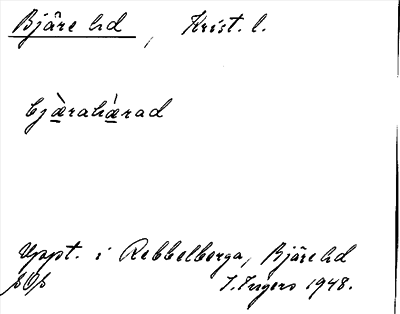 Bjäre hd, Krist. l.
bjæ̀rahǽrad
Uppt. i Rebbelberga, Bjäre hd
SOf I. Ingers 1948.